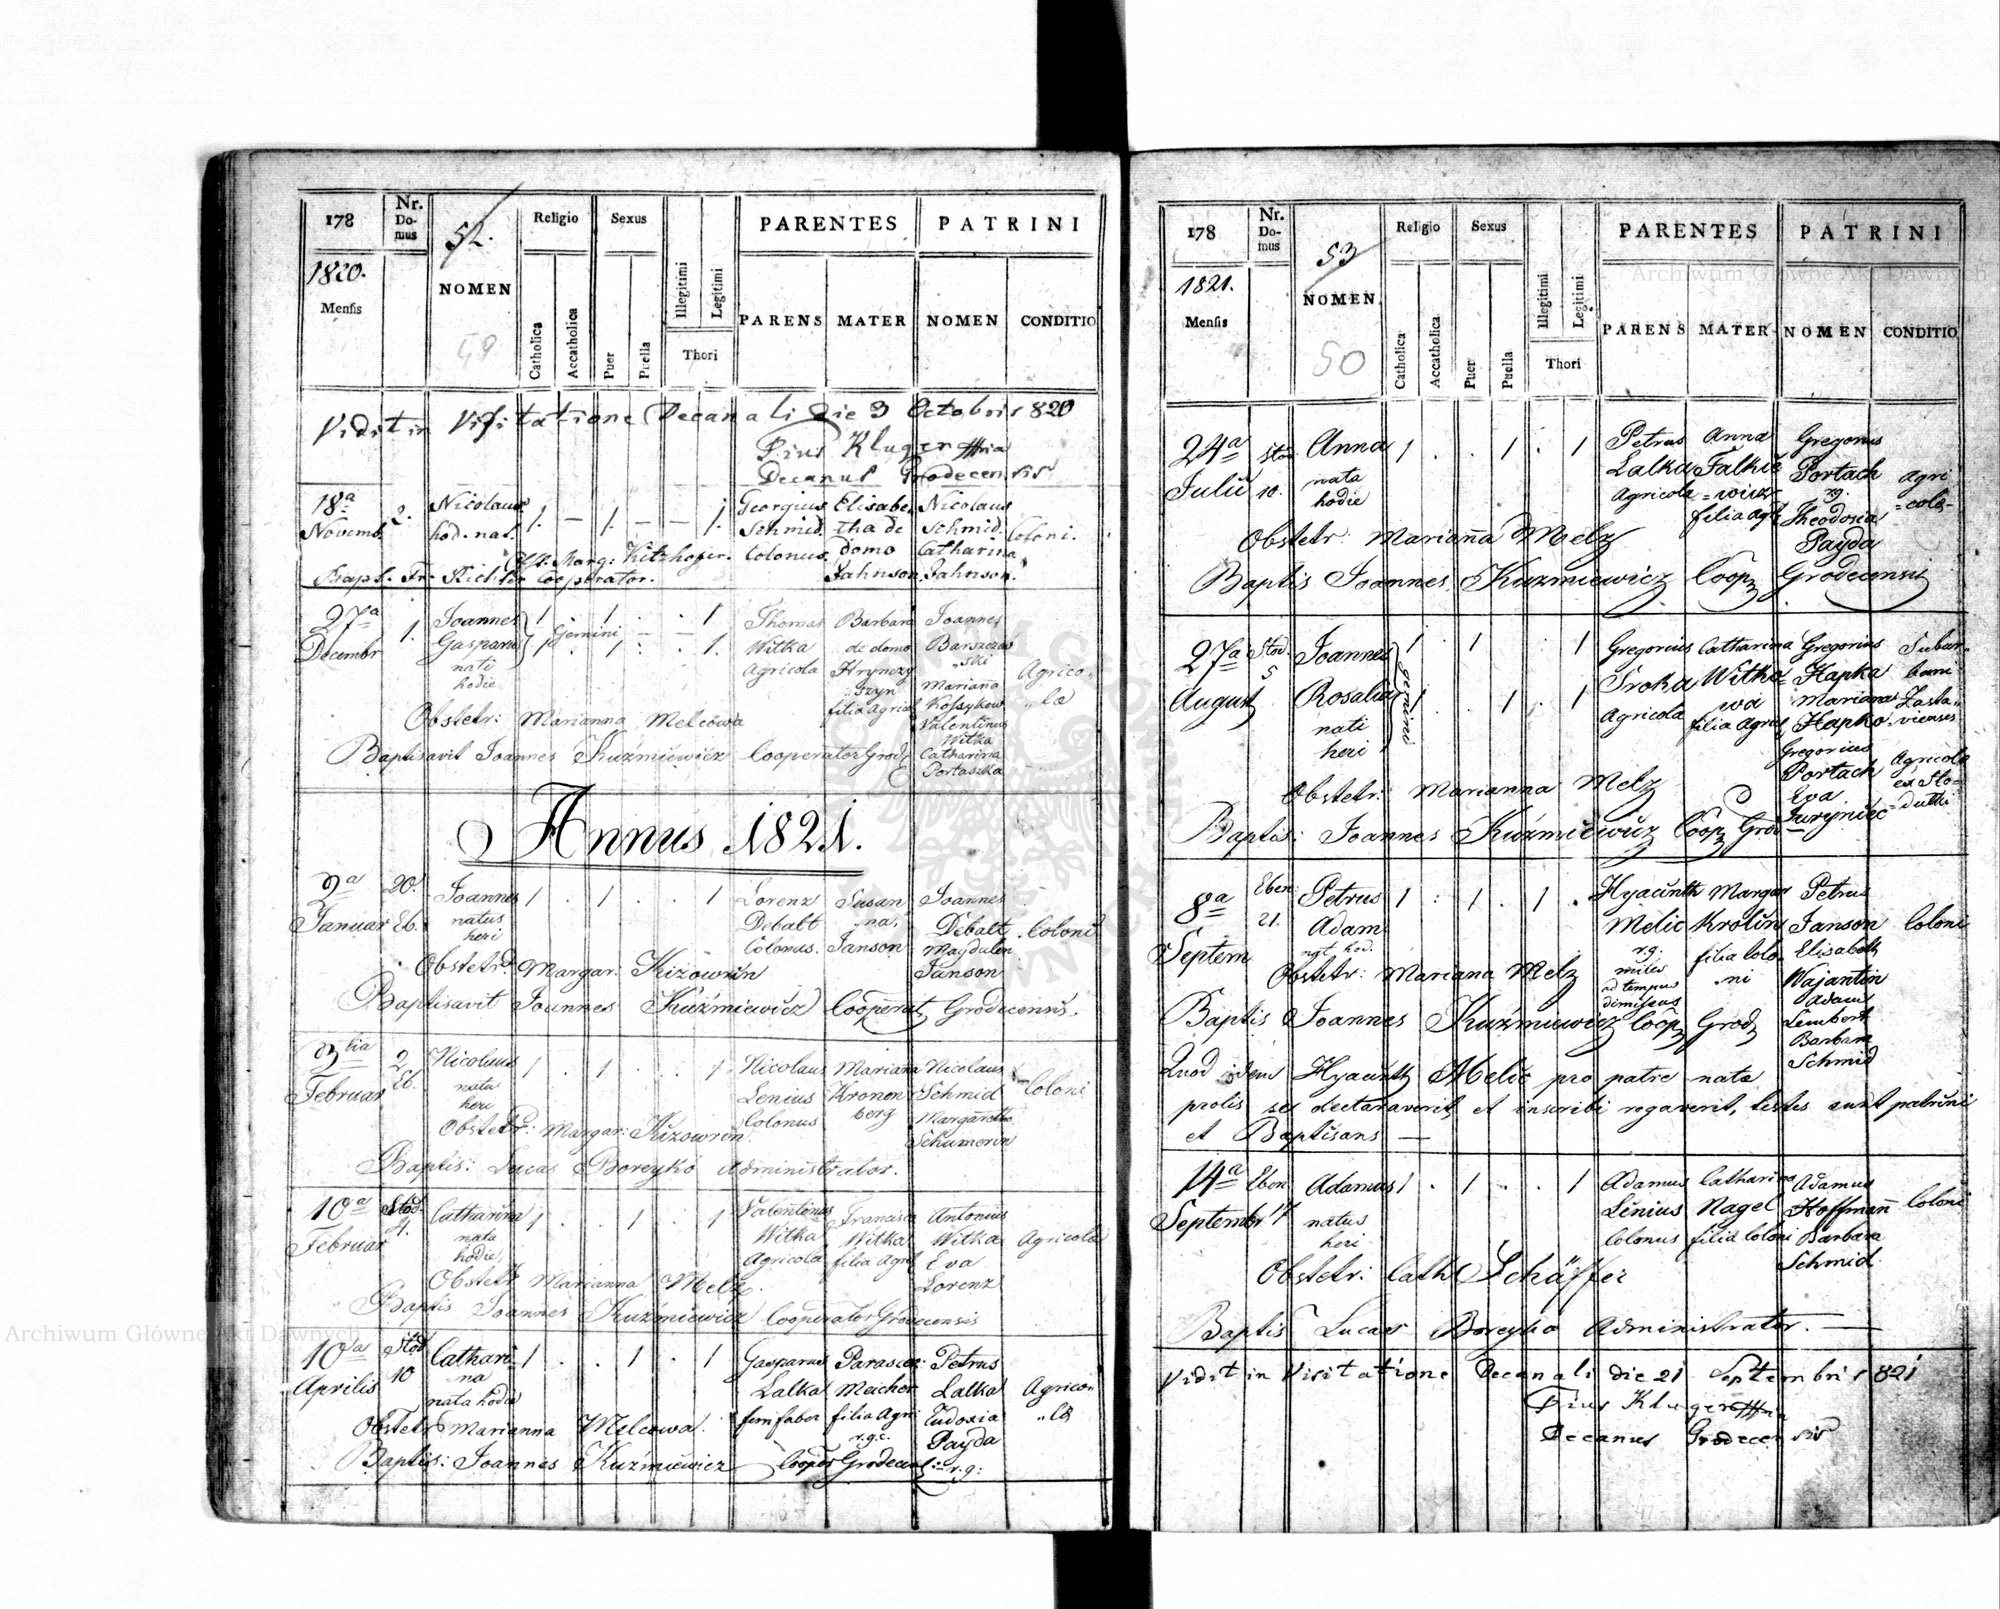 178 Nr. Do- mus 52. Religio Sexus PARENTES PATRINI
1820. Mensis NOMEN 49 Catholica Accatholica Puer Puella Illegitimi Legitimi Thori PARENS MATER NOMEN CONDITIO
Vidit in Visitatione Decanali die 3 Octobris 820
Pius Kluger
Decanus Grodecensis
18a 2. Nicolaus 1. — 1. — — 1. Georgius Elisabe Nicolaus
Novemb hod. nat. Schmid. tha de Schmid. Coloni.
Obst: Marg: Kitzhofer. Colonus domo Catharina
Bapt. Fr. Richter Cooperator. Jahnson. Jahnson.
27a 1. Joannes 1 . 1 . . 1 Thomas Barbara Joannes
Decembr Gasparus 1 Gemini 1 — — 1. Witka de domo Barszczew
nati Agricola Hrynczy „ski Agrico„
hodie „szyn Marianna „la
filia Agricol Kossykow
Obstetr: Marianna Melcowa Valentinus
Witka
Baptisavit Joannes Kuźmiewicz Cooperator Grod Catharina
Portaszka
Annus 1821.
2a 20. Joannes 1 . 1 . . 1 Lorenz Susan Joannes
Januar Eb. natus Debalt „na, Debalt Coloni
heri Colonus. Janson Magdalen
Obstetr. Margar. Kizowrin Janson
Baptisavit Joannes Kuźmiewicz Cooperat Grodecensis.
3tia 2 Nicolaus 1 . 1 . . 1 Nicolaus Mariana Nicolaus
Februar Eb. natu Lenius Kronen Schmid Coloni
heri Colonus berg Margaretha
Obstetr: Margar: Kizowrin Schumerin
Baptis: Lucas Boreyko Administrator.
10a Stod. Catharina 1 . . 1 . 1 Valentinus Francisca Antonius
Februar 4. nata Witka Witka Witka Agricola
hodie Agricola filia Agri Eva
Obstetr Marianna Melz. Lorenz
Baptis Joannes Kuźmiewicz Cooperator Grodecensis
10a Stod Cathari 1 . . 1 . 1 Gasparus Parascev Petrus
Aprilis 10 na Lalka Meicher Lalka Agrico„
nata hodie ferrifaber filia Agri Eudoxia „la
Obstetr Marianna Melcowa. r.g.c. Payda
Baptis: Joannes Kuźmiewicz Cooper Grodecens r.g:
178 Nr. Do- mus 53 Religio Sexus PARENTES PATRINI
1821. Mensis NOMEN. 50 Catholica Accatholica Puer Puella Illegitimi Legitimi Thori PARENS MATER NOMEN CONDITIO
24a Stod Anna 1 . . 1 . 1 Petrus Anna Gregorius
Julii 10. nata Lalka Falkie Portach Agri
hodie Agricola =wicz rg. =cola-
filia Agr Theodosia
Obstetr: Marianna Melz Payda
Baptis Joannes Kuźmiewicz Coop Grodecensis
27a Stod. Joannes 1 . 1 . . 1 Gregorius Catharina Gregorius Subur„
August 5 Rosalia gemini 1 . . 1 . 1 Sroka Witko= Hapka bani
nati Agricola wa Mariana Zasta„
heri filia Agricol Hapko vienses
Gregorius
Portach Agricola
Obstetr: Marianna Melz Eva ex Sto=
Baptis: Joannes Kuźmiewicz Coop Grod Juryniec =dulki
8a Eben: Petrus 1 . 1 . 1 . Hyacinth Margar Petrus
Septem 21. Adam Melic Krolin Janson Coloni
nat hod. r.g. filia Colo Elisabeth
Obstetr: Mariana Melz miles „ni Wajantin
ad tempus Adam
dimissus Lembert
Baptis Joannes Kuźmiewicz Coop Grod Barbara
Schmid
Quod idem Hyacinth Melic pro patre nata
prolis se declaraverit, et inscribi rogaverit, testes sunt patrini
et Baptisans —
14a Eben Adamus 1 . 1 . . 1 Adamus Catharina Adamus
Septembr 17 natus Lenius Nagel Hoffmann Coloni
heri Colonus filia Coloni Barbara
Obstetr: Cath Schäffer Schmid.
Baptis Lucas Boreyko Administrator. —
Vidit in Visitatione Decanali die 21 Septembris 821
Pius Kluger
Decanus Grodecensis
Archiwum Główne Akt Dawnych
Archiwum Główne Akt Dawnych